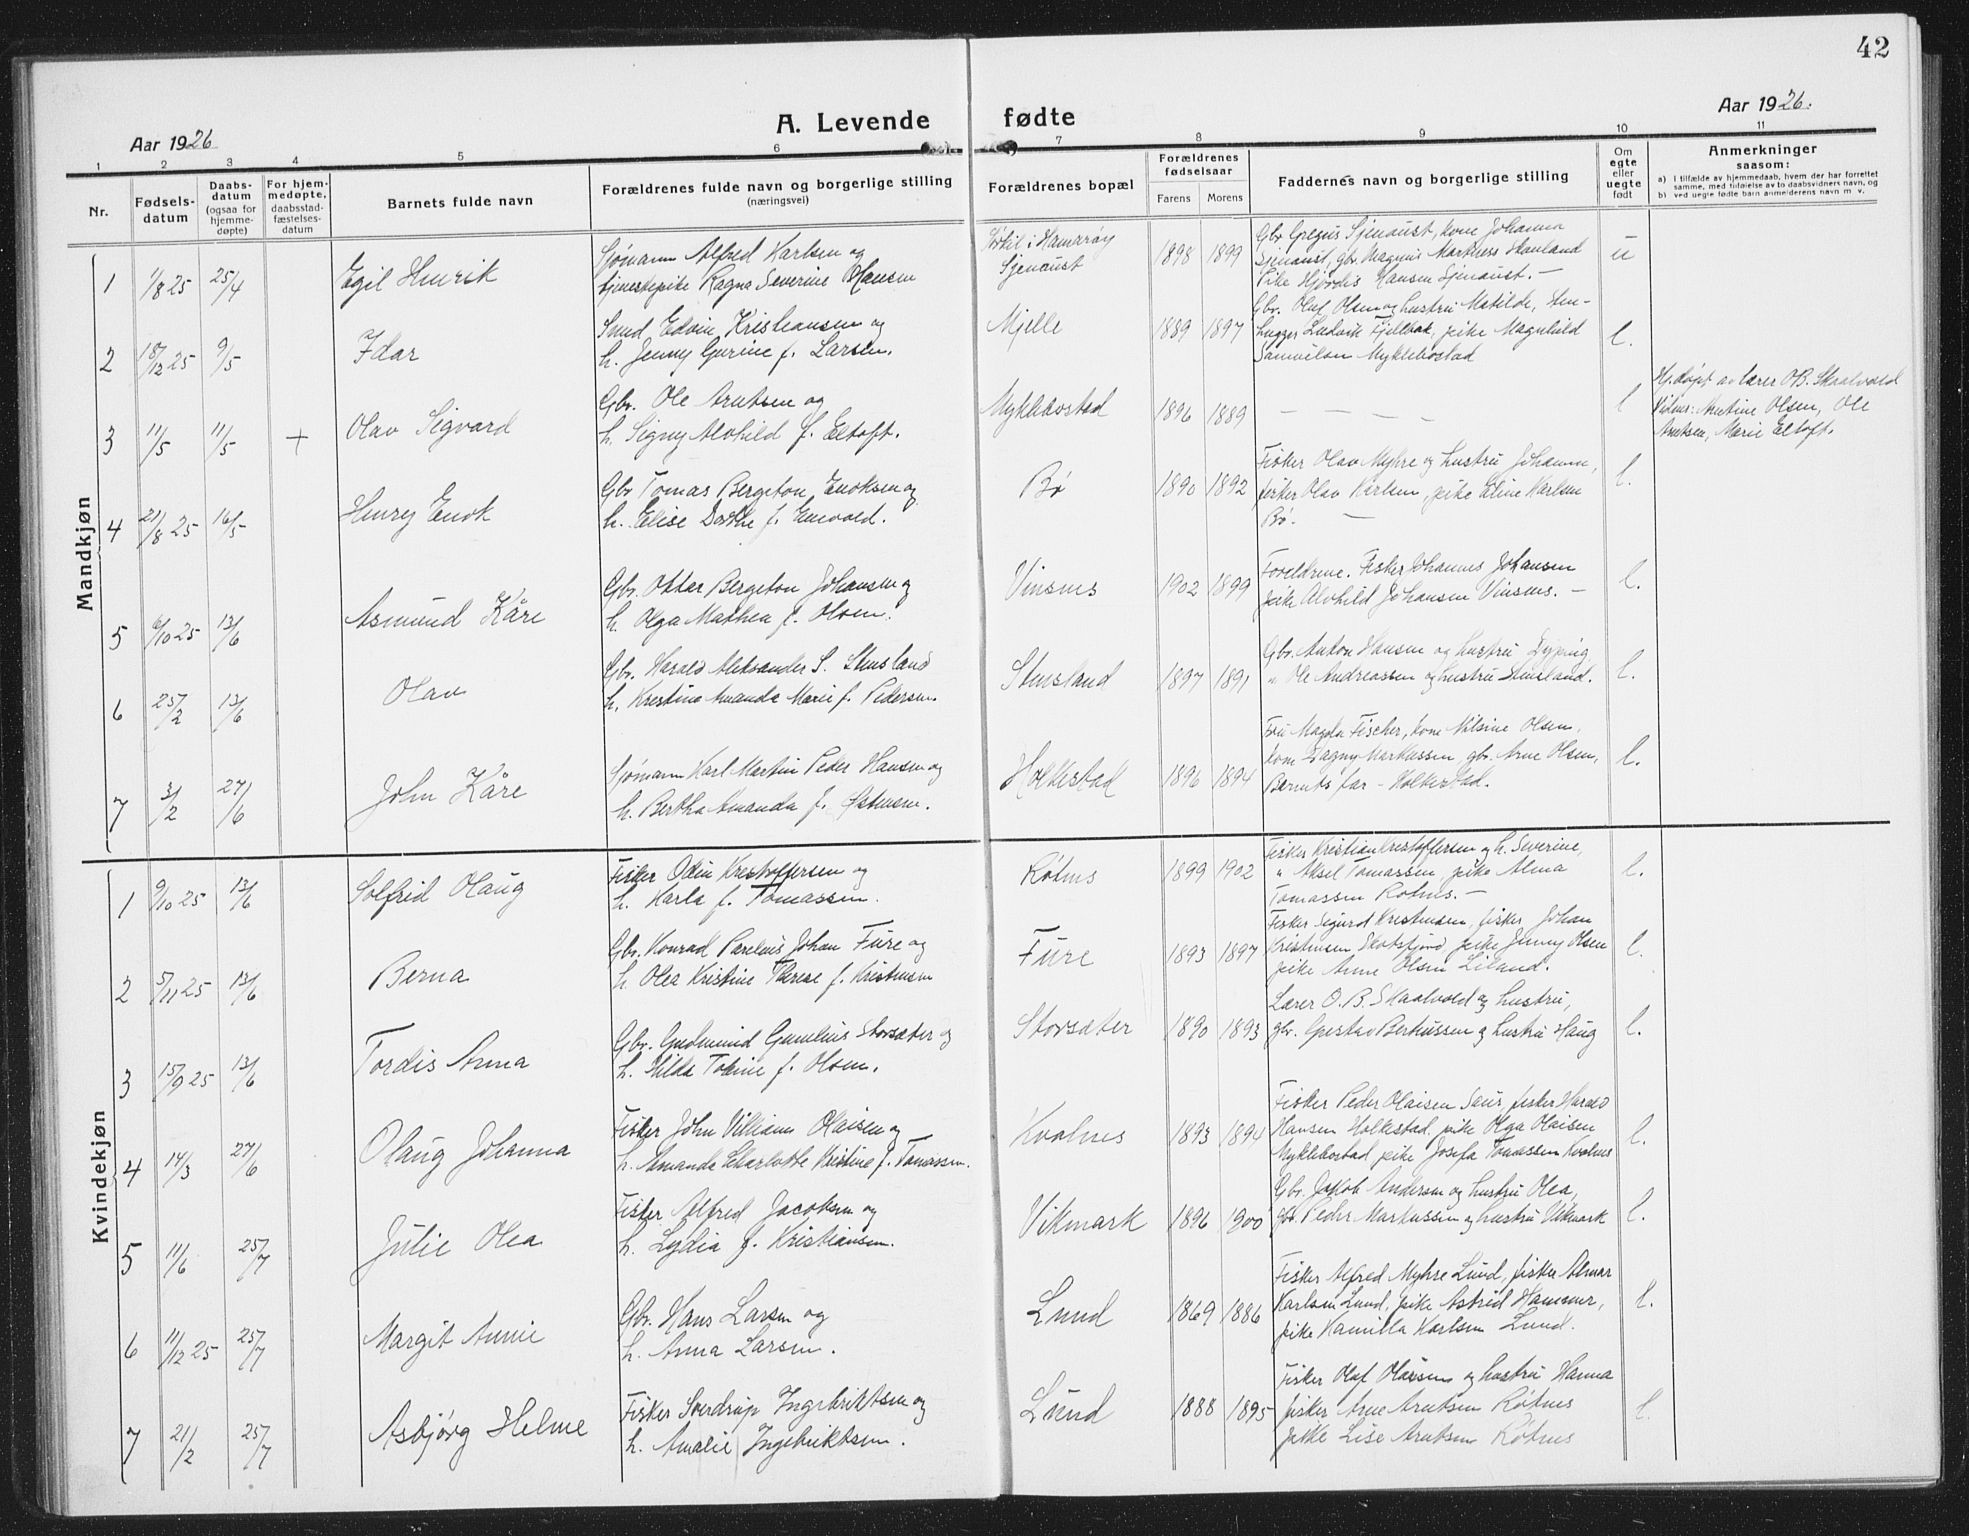 42
Aar 1926
A. Levende fødte
Aar 1926.
1 2 3 4 5 6 7 8 9 10 11
Nr.
Fødsels-
datum
Daabs-
datum
(ogsaa for
hjemme-
døpte)
For hjem-
medøpte,
daabsstad-
fæstelses-
datum
Barnets fulde navn
Forældrenes fulde navn og borgerlige stilling
(næringsvei)
Forældrenes bopæl
Forældrenes
fødselsaar
Farens Morens
Faddernes navn og borgerlige stilling
Om
egte
eller
uegte
født
Anmerkninger
saasom:
a) I tilfælde av hjemmedaab, hvem der har forrettet
samme, med tilføielse av to daabsvidners navn, og
b) ved uegte fødte barn anmelderens navn m. v.
Mandkjøn
1 1/8 25 25/4 Egil Henrik
Sjømann Alfred Karlsen og
tjenestepike Ragna Severine Hansen
i Hamarøy
Sjenaust
1898 1899
Gbr. Gregus Sjenaust, kone Johanna
Sjenaust, gbr. Magnus Hauland
Pike Hjørdis Hansen Sjenaust. —
u
2 18/12 25 9/5 Idar
Smed Edvin Kristiansen og
h. Jenny Gurine f. Larsen.
Mjelle
1889 1897
Gbr. Oluf Olsen og hustru Matilde, sten-
hugger Ludvik Fjellbak, pike Magnhild
Samuelsen Myklebostad
l.
3 11/5 11/5 + Olav Sigvard
Gbr. Ole Arntsen og
h. Signy Alvhild f. Eltoft.
Myklebostad
1896 1889
— — — —
l
Hj.døpt av lærer O.B. Skaalvold
Vidner: Arntine Olsen, Ole
Arntsen, Marie Eltoft.
4 21/8 25 16/5 Henry Enok
Gbr Tomas Bergeton Enoksen og
h. Elise Dorthe f. Enevold.
Bø
1890 1892
Fisker Olav Myhre og hustru Johanna,
fisker Olav Karlsen, pike Eline Karlsen
Bø. —
l.
5 6/10 25 13/6 Asmund Kåre
Gbr. Ottar Bergeton Johansen og
h. Olga Mathea f. Olsen.
Vinsnes
1902 1899
Foreldrene. Fisker Johannes Johansen
pike Alvhild Johansen Vinsnes. —
l.
6 25/2 13/6 Olav
Gbr. Harald Aleksander S. Stensland
h. Kristine Amanda Marie f. Pedersen.
Stensland
1897 1891
Gbr. Anton Hansen og hustru Dyping
" Ole Andreassen og hustru Stensland.
l.
7 3/2 27/6 John Kåre
Sjømann Karl Martin Peder Hansen og
h. Bertha Amanda f. Østensen.
Holkestad
1896 1894
Fru Magda Fischer, kone Nilsine Olsen,
kone Dagny Markussen gbr. Arne Olsen,
Barnets far — Holkestad.
l.
Kvindekjøn
1 9/10 25 13/6 Solfrid Olaug
Fisker Odin Kristoffersen og
h. Harla f. Tomassen.
Røtnes
1899 1902
Fisker Kristian Kristoffersen og h. Severine,
" Aksel Tomassen, pike Alma
Tomassen Røtnes. —
l.
2 5/11 25 13/6 Berna
Gbr. Konrad Parelius Johan Fure og
h. Olea Kristine Therese f. Kristensen
Fure
1893 1897
Fisker Sigurd Kristensen, fisker Johan
Kristensen Skotsfjord, pike Jenny Olsen
pike Anne Olsen Liland.
l.
3 15/9 25 13/6 Tordis Anna
Gbr. Gudmund Gamelius Storsæter og
h. Hilda Tobine f. Olsen.
Storsæter
1890 1893
Lærer O. B. Skaalvold og hustru,
gbr. Gustav Berteussen og hustru Haug
l.
4 14/3 27/6 Olaug Johanna
Fisker John Villiams Olaisen og
h. Amanda Scharlotte Kristine f. Tomassen.
Kvalnes
1893 1894
Fisker Peder Olaisen Saur, fisker Harald
Hansen Holkestad, pike Olga Olaisen
Myklebostad pike Josefa Tomassen Kvalnes
l.
5 11/6 25/7 Julie Olea
Fisker Alfred Jacobsen og
h. Lydia f. Kristiansen.
Vikmark
1896 1900
Gbr. Jakob Andersen og hustru Olea,
gbr. Peder Markussen og hustru Vikmark
l.
6 11/12 25 25/7 Margit Annie
Gbr. Hans Larsen og
h. Anna Larsen.
Lund
1869 1886
Fisker Alfred Myhre Lund, fisker Almar
Karlsen Lund, pike Astrid Hammer,
pike Kamilla Karlsen Lund.
l.
7 21/2 25/7 Asbjørg Helene
Fisker Sverdrup Ingebriktsen og
h. Amalie Ingebriktsen.
Lund
1888 1895
Fisker Olaf Olaisen og hustru Hanna
fisker Arne Arntsen Røtnes
pike Lise Arntsen Røtnes
l.